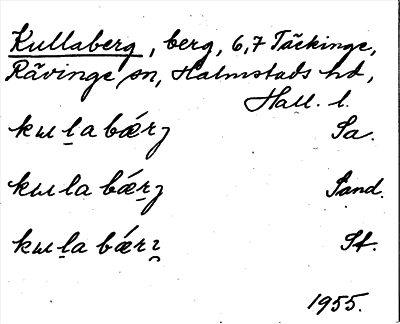 Kullaberg, berg, 6,7 Täckinge,
Rävinge sn, Halmstads hd,
Hall. l.
kɯḷa bǽrʒ Sa.
kɯla bǽr̤ʒ Sand.
kɯḷa bǽrʒ St.
1955.